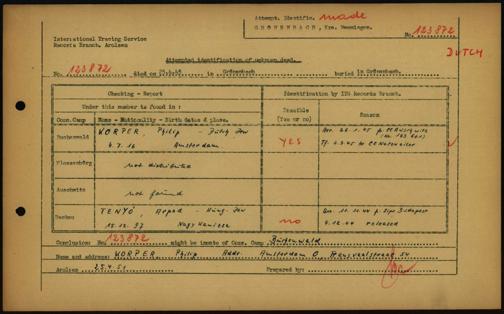 Attempt. Identific. made
GRÖNENBACH, Krs. Memmingen.
International Tracing Service
Records Branch, Arolsen
No. 123872
DUTCH
Attempted identification of unknown dead.
No. 123872 died on in Grönenbach buried in Grönenbach.
Checking - Report
Identification by ITS Records Branch.
Under this number is found in :
Feasible
(Yes or no)
Reason
Conc. Camp
Name - Nationality - Birth dates & place.
Buchenwald
WORPER, Philip - Dutch Jew
6.7.16 Amsterdam
YES
Arr. 26.1.45 p. CC Auschwitz
Tf. 2.3.45 to CC Natzweiler
Flossenbürg
not distributed
Auschwitz
not found
Dachau
TENYÖ, Arpad - Hung. Jew
15.12.97 Nagy Kanizsa
no
Arr. 11.11.44 p. Sipo Budapest
9.12.44 released
Conclusion: No. 123872 might be inmate of Conc. Camp Buchenwald
Name and address: WORPER Philip Addr. Amsterdam O,
Arolsen 25.4.51 Prepared by: